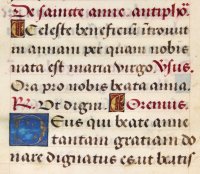 De sancte anne. antiphõ
Celeste beneficiũ ītrouit
in annam per quam nobis
nata est maria virgo Vsus.
Ora pro nobis beata anna.
R. Vt digni. Oremus.
Deus qui beate anne
tantam gratiam do
nare dignatus es. ut beatis